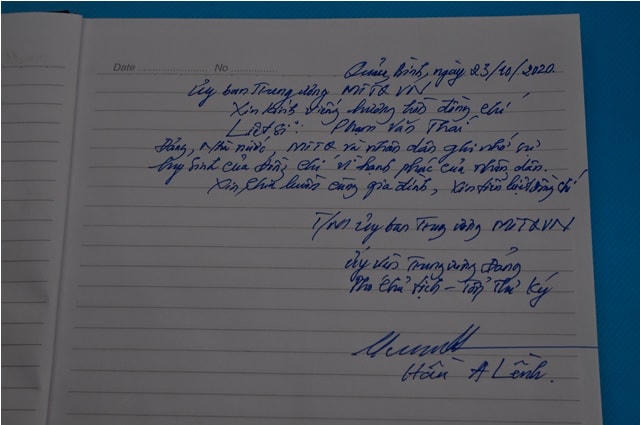 Date ........................ No ................
Quảng Bình, ngày 23/10/2020.
Ủy ban Trung ương MTTQVN
Xin kính viếng hương hồn đồng chí
Liệt sĩ: Phạm Văn Thái
Đảng, Nhà nước, MTTQ và nhân dân ghi nhớ sự
hy sinh của đồng chí vì hạnh phúc của nhân dân.
Xin chia buồn cùng gia đình, xin tiễn biệt đồng chí
T/M Ủy ban Trung ương MTTQVN
Ủy viên Trung ương Đảng
Phó Chủ tịch - Tổng Thư ký
Hầu A Lềnh.